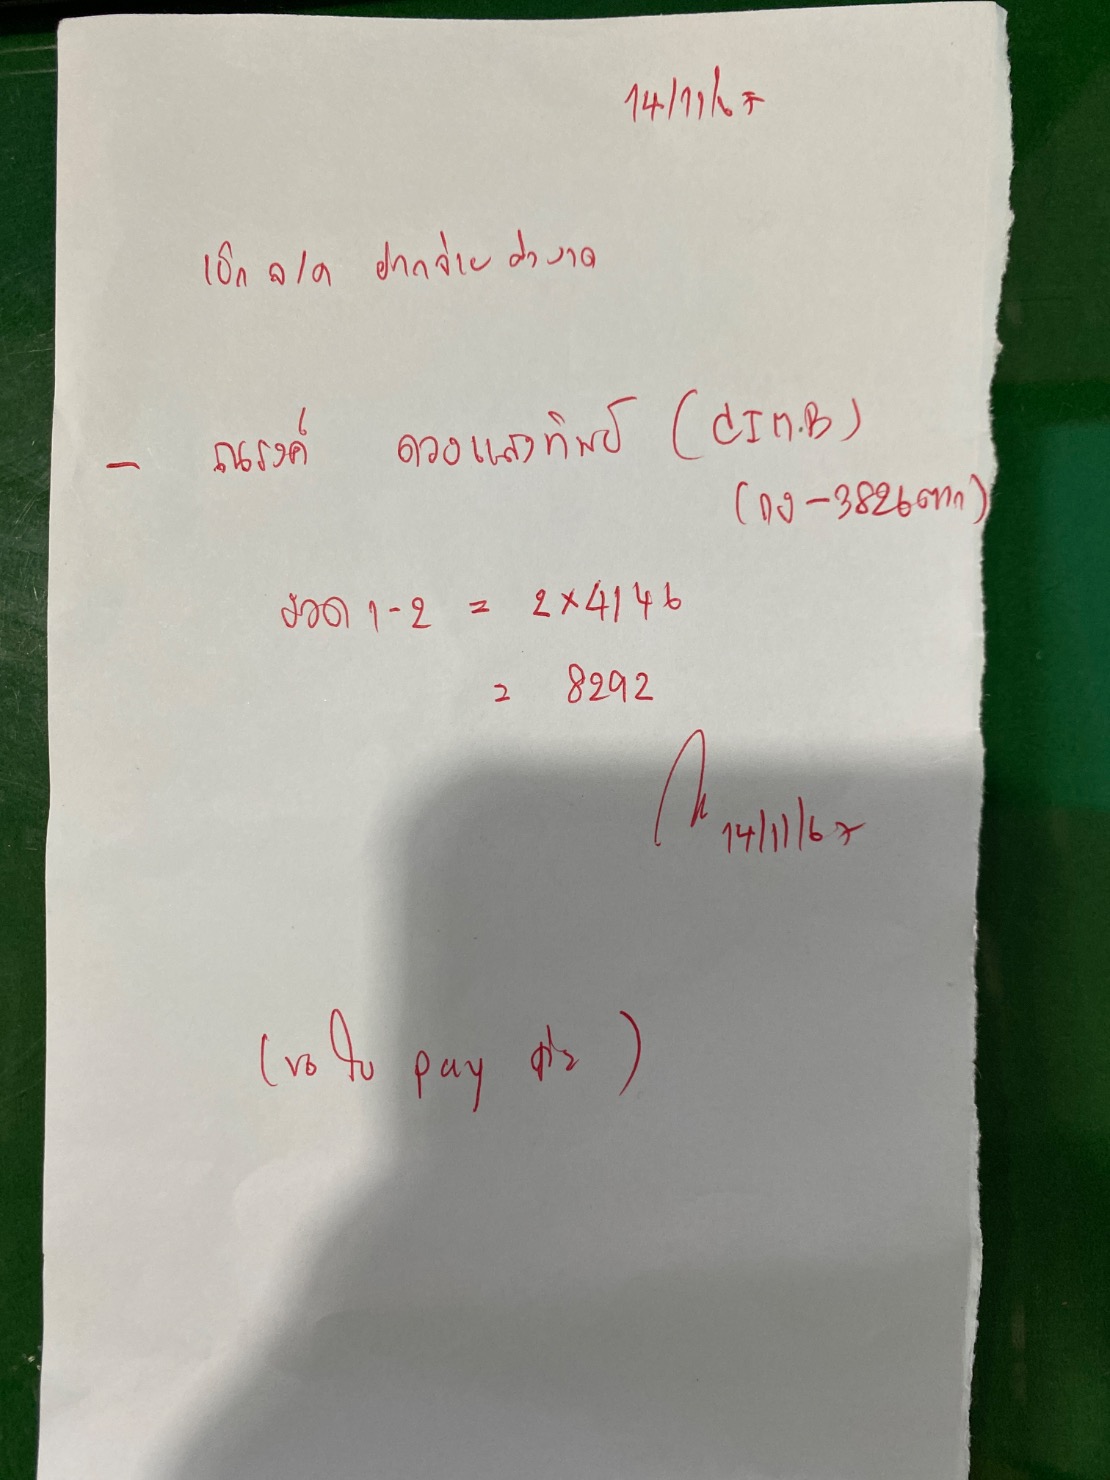 14/11/67
เบิก จ/ค ฝากจ่ายค่างวด
- ณรงค์ ดวงแสงทิพย์ (CIM.B)
(กง-3826ตาก)
งวด 1-2 = 2×4146
= 8292
14/11/67
(ขอใบ pay ด้วย)